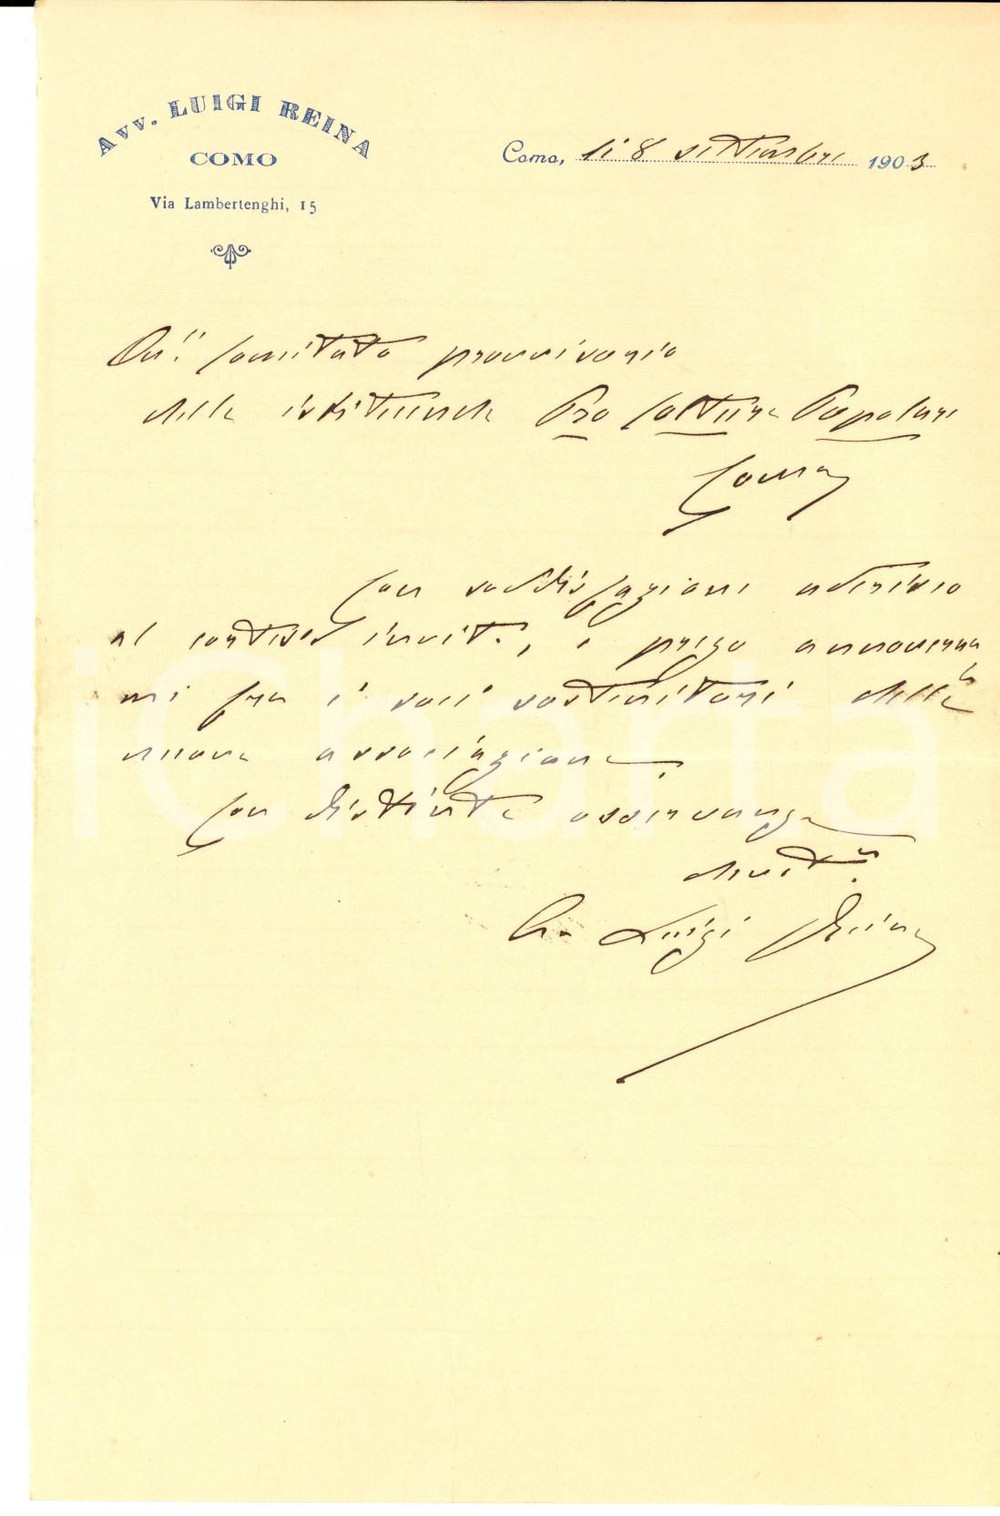 Avv. LUIGI REINA
COMO
Via Lambertenghi, 15
Como, li 8 settembre 1903
On. Comitato provvisorio
della istituenda Pro Coltura Popolare
Como
Con soddisfazione aderisco
al cortese invito, e prego annoverar
mi fra i soci sostenitori della
nuova associazione.
Con distinta osservanza
devot.
Avv. Luigi Reina
iCharta